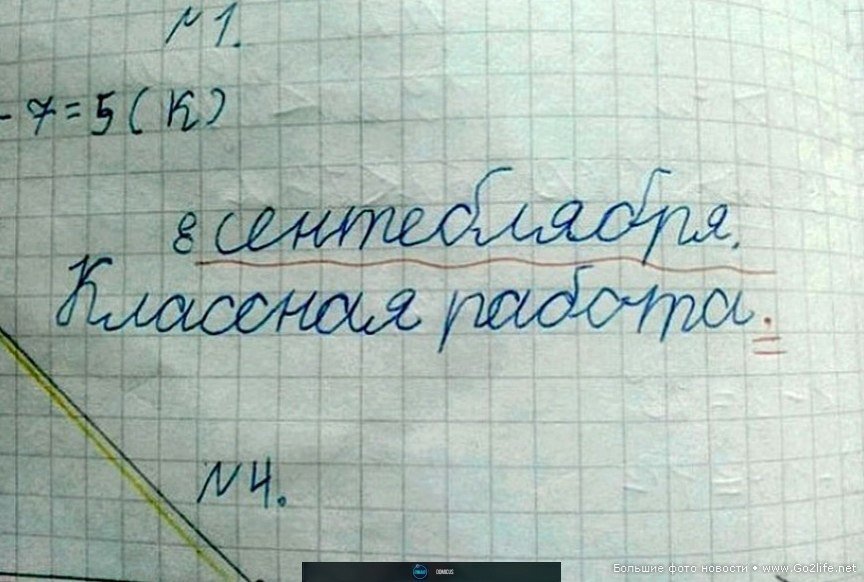 №1.
- 7 = 5 (К)
8 сентеблября.
Классная работа.
№4.
DOMICUS
Большие фото новости • www.Go2life.net